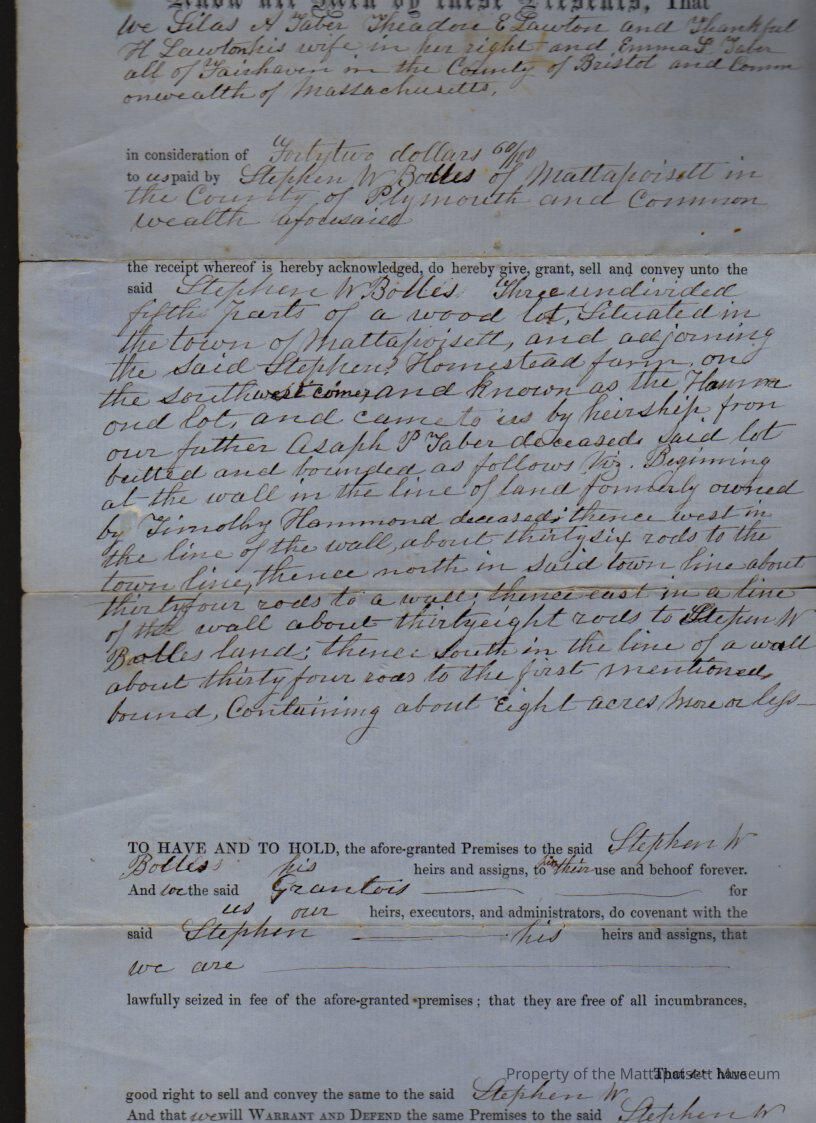 Know all Men by these Presents, That
We Silas A Taber Theadore E Lawton and Thankful
H Lawton his wife in her right and Emma S. Taber
all of Fairhaven in the County of Bristol and Comm
onwealth of Massachusetts,
in consideration of Fortytwo dollars 60/100
to us paid by Stephen W Bolles of Mattapoisett in
the County of Plymouth and Common
wealth aforesaied
the receipt whereof is hereby acknowledged, do hereby give, grant, sell and convey unto the
said Stephen W. Bolles Three undivided
fifths parts of a wood lot, Situated in
the town of Mattapoisett, and adjoining
the said Stephens Homestead farm, on
the southwest corner and known as the Hamm
ond lot, and came to us by heirship from
our father Asaph P Taber deceased, said lot
butted and bounded as follows Viz. Beginning
at the wall in the line of land formerly owned
by Timothy Hammond deceased; thence west in
the line of the wall, about thirtysix rods to the
town line, thence north in said town line about
thirtyfour rods to a wall; thence east in a line
of the wall about thirtyeight rods to Stephen W
Bolles land; thence South in the line of a wall
about thirtyfour rods to the first mentioned
bound, Containing about Eight acres more or less—
TO HAVE AND TO HOLD, the afore-granted Premises to the said Stephen W
Bolles his heirs and assigns, to his their use and behoof forever.
And we the said Grantors for
us our heirs, executors, and administrators, do covenant with the
said Stephen his heirs and assigns, that
we are
lawfully seized in fee of the afore-granted premises; that they are free of all incumbrances,
That we have
Property of the Mattapoisett Museum
good right to sell and convey the same to the said Stephen W
And that we will WARRANT AND DEFEND the same Premises to the said Stephen W